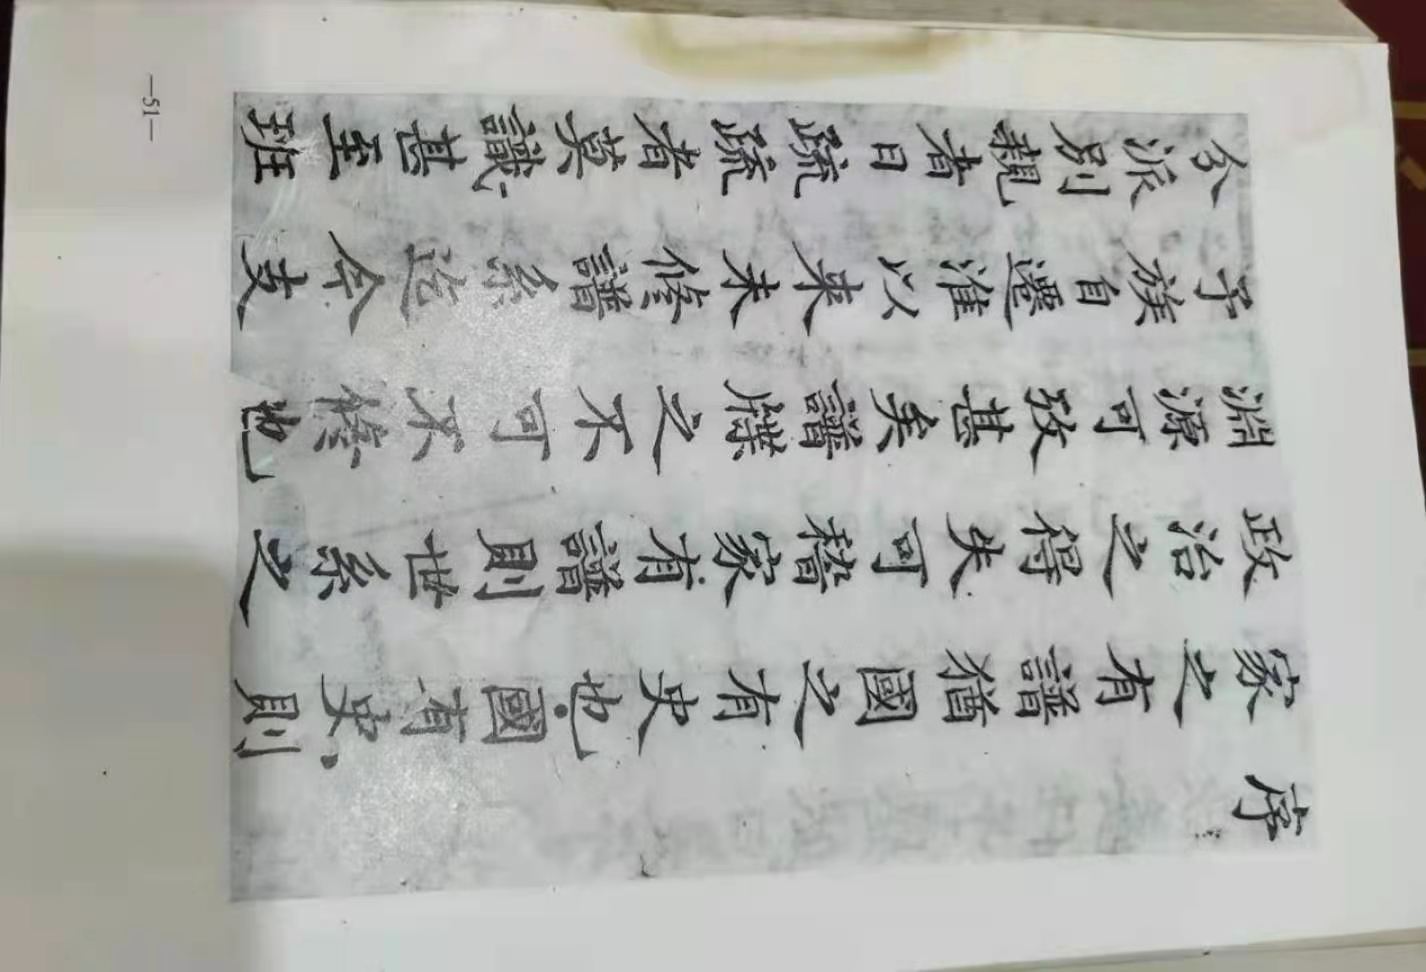 序
家之有譜猶國之有史也國有史則
政治之得失可稽家有譜則世系之
淵源可攷甚矣譜牒之不可不修也
予族自遷淮以来未修譜系迄今支
分派別親者日疏疏者莫識甚至班
—51—